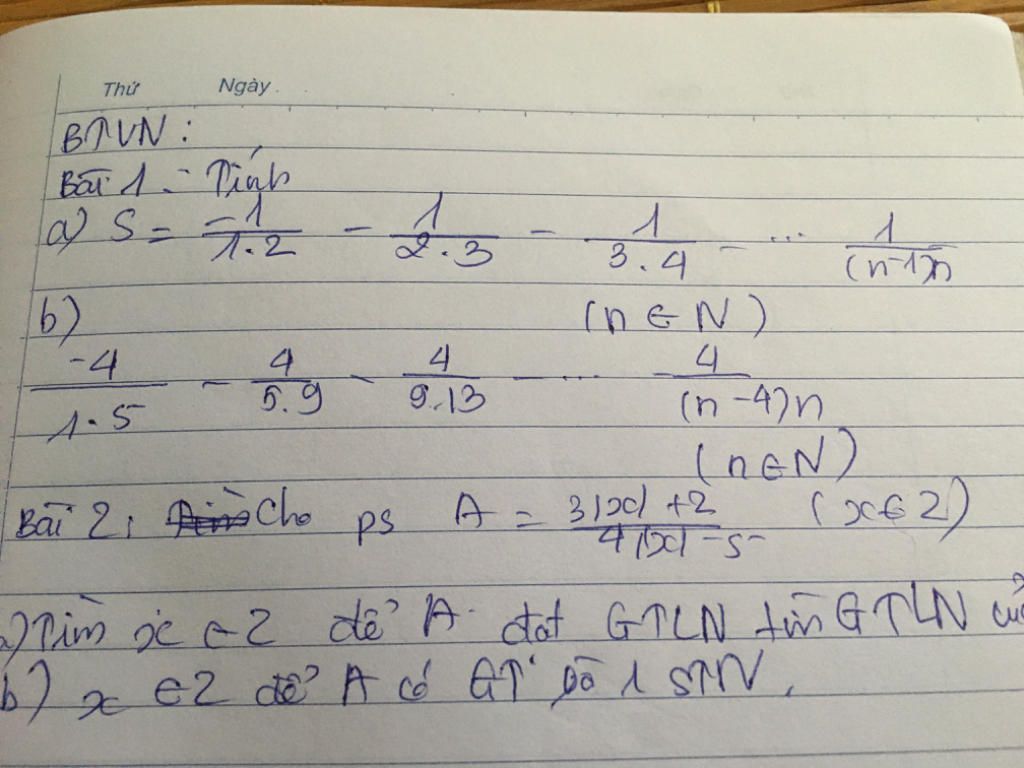 Thứ Ngày
BTVN:
Bài 1: Tính
a) S = -1/1.2 - 1/2.3 - 1/3.4 - ... 1/(n-1)n
(n ∈ N)
b)
-4/1.5 - 4/5.9 - 4/9.13 - ... - 4/(n-4)n
(n ∈ N)
Bài 2: Cho ps A = 3|x|+2/4|x|-5 (x ∈ Z)
a) Tìm x ∈ Z để A đạt GTLN tìm GTLN
b) x ∈ Z để A có GT là 1 STN.